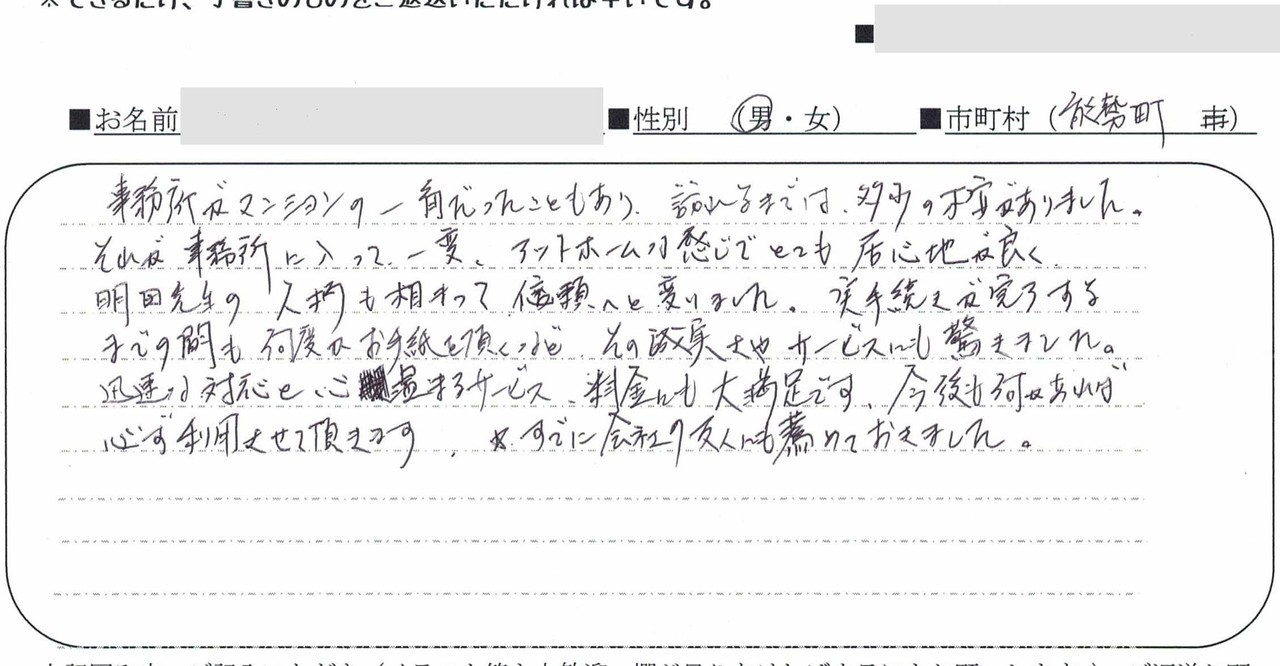 ※できるだけ、手書きのものをご返送いただければ幸いです。
■
■お名前 ■性別 (男・女) ■市町村 (能勢町 市)
事務所がマンションの一角だったこともあり、訪れるまでは、多少の不安がありました。
それが事務所に入って、一変、アットホームな感じでとても居心地が良く、
明田先生の人柄も相まって信頼へと変りました。 手続きが完了する
までの間も何度かお手紙を頂くなど、その誠実さやサービスにも驚きました。
迅速な対応と心温まるサービス、料金にも大満足です、今後も何かあれば
必ず利用させて頂きます。 ※すでに会社の友人にも薦めておきました。